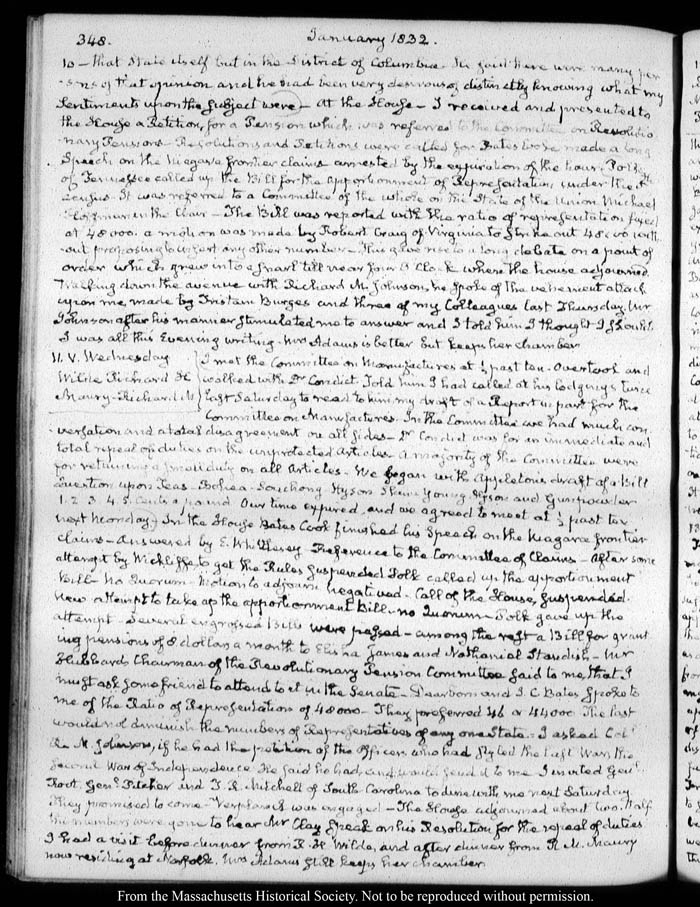 348. January 1832.
10 – that State itself but in the District of Columbia. He said there were many per
sons of that opinion and he had been very desirous of distinctly knowing what my
Sentiments upon the subject were – At the House – I received and presented to
the House a Petition, for a Pension which was referred to the Committee on Revolutio
nary Pensions. Resolutions and Petitions were called for Bates Cooke made a long
Speech on the Niagara frontier claims arrested by the expiration of the hour. Polk
of Tennessee called up the Bill for the apportionment of Representation, under the 5th
Census. It was referred to a Committee of the whole on the State of the Union. Michael
Hoffman in the Chair – The Bill was reported with the ratio of representation fixed
at 48000. a motion was made by Robert Craig of Virginia to strike out 48000 with
out proposing to insert any other number – This gave rise to a long debate on a point of
order which grew into a snarl till near four O'Clock when the house adjourned.
Walking down the avenue with Richard M. Johnson, he spoke of the vehement attack
upon me made by Tristam Burges and three of my Colleagues last Thursday. Mr
Johnson after his manner stimulated me to answer and I told him I thought I should.
I was all this Evening writing. Mrs Adams is better but keeps her chamber
11. V. Wednesday I met the Committee on Manufactures at ½ past ten. Overtook and
Wilde Richard H walked with Dr Condict. Told him I had called at his lodgings twice
Maury Richard M last Saturday to read to him, my draft of a Report in part for the
Committee on Manufactures. In the Committee we had much con
versation and a total disagreement on all sides – Dr Condict was for an immediate and
total repeal of duties on the unprotected Articles. A majority of the Committee were
for retaining a small duty on all Articles – We began with Appleton's draft of a Bill
Question upon Teas. Bohea. Souchong Hyson Skin Young Hyson and Gunpowder
1. 2. 3. 4. 5. Cents a pound. Our time expired, and we agreed to meet at ½ past ten
next Monday. In the House Bates Cook finished his Speech on the Niagara frontier
claims – Answered by E. Whittlesey – Reference to the Committee of Claims – After some
attempt by Wickliffe, to get the Rules suspended Polk called up the apportionment
Bill – No Quorum – Motion to adjourn negatived. Call of the House, suspended.
New attempt to take up the apportionment Bill – no Quorum – Polk gave up the
attempt – Several engrossed Bills were passed – among the rest a Bill for grant
ing pensions of 8 dollars a month to Elisha James and Nathaniel Standish – Mr
Hubbard, Chairman of the Revolutionary Pension Committee said to me, that I
must ask some friend to attend to it in the Senate – Dearborn and I. C. Bates spoke to
me of the Ratio of Representation of 48000 – They preferred 46 or 44000 The last
would not diminish the numbers of Representatives of any one State – I asked Col
R. M. Johnson, if he had the petition of the Officers who had styled the last War the
Second War of Independence. He said he had, and would send it to me I invited Genl
Root, Genl Pitcher and T. R. Mitchell of South Carolina to dine with me next Saturday
They promised to come – Verplanck was engaged – The House adjourned about two. Half
the members were gone to hear Mr Clay speak on his Resolution for the repeal of duties
I had a visit before dinner from R. H. Wilde, and after dinner from R. M. Maury
now residing at Norfolk. Mrs Adams still keeps her chamber.
From the Massachusetts Historical Society. Not to be reproduced without permission.